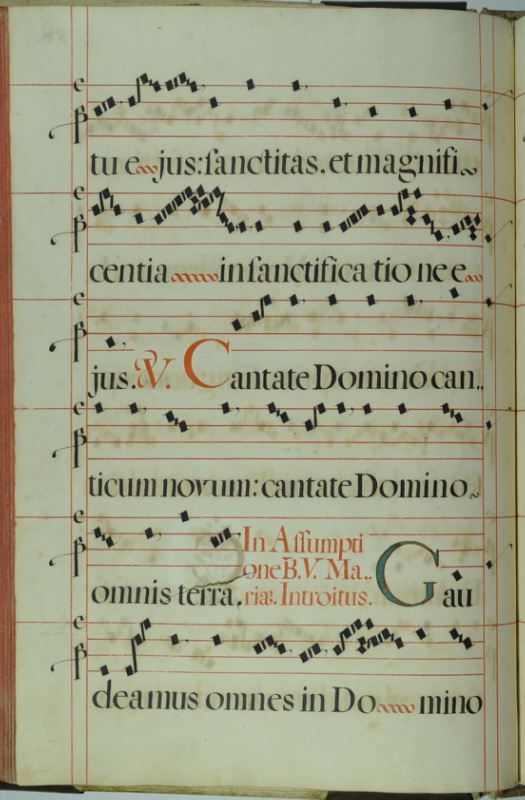 tu e jus: sanctitas. et magnifi
centia in sanctifica tio ne e
jus. V. Cantate Domino can..
ticum novum: cantate Domino
omnis terra. In Assumpti
one B. V. Ma..
riæ. Introitus. Gau
deamus omnes in Do mino